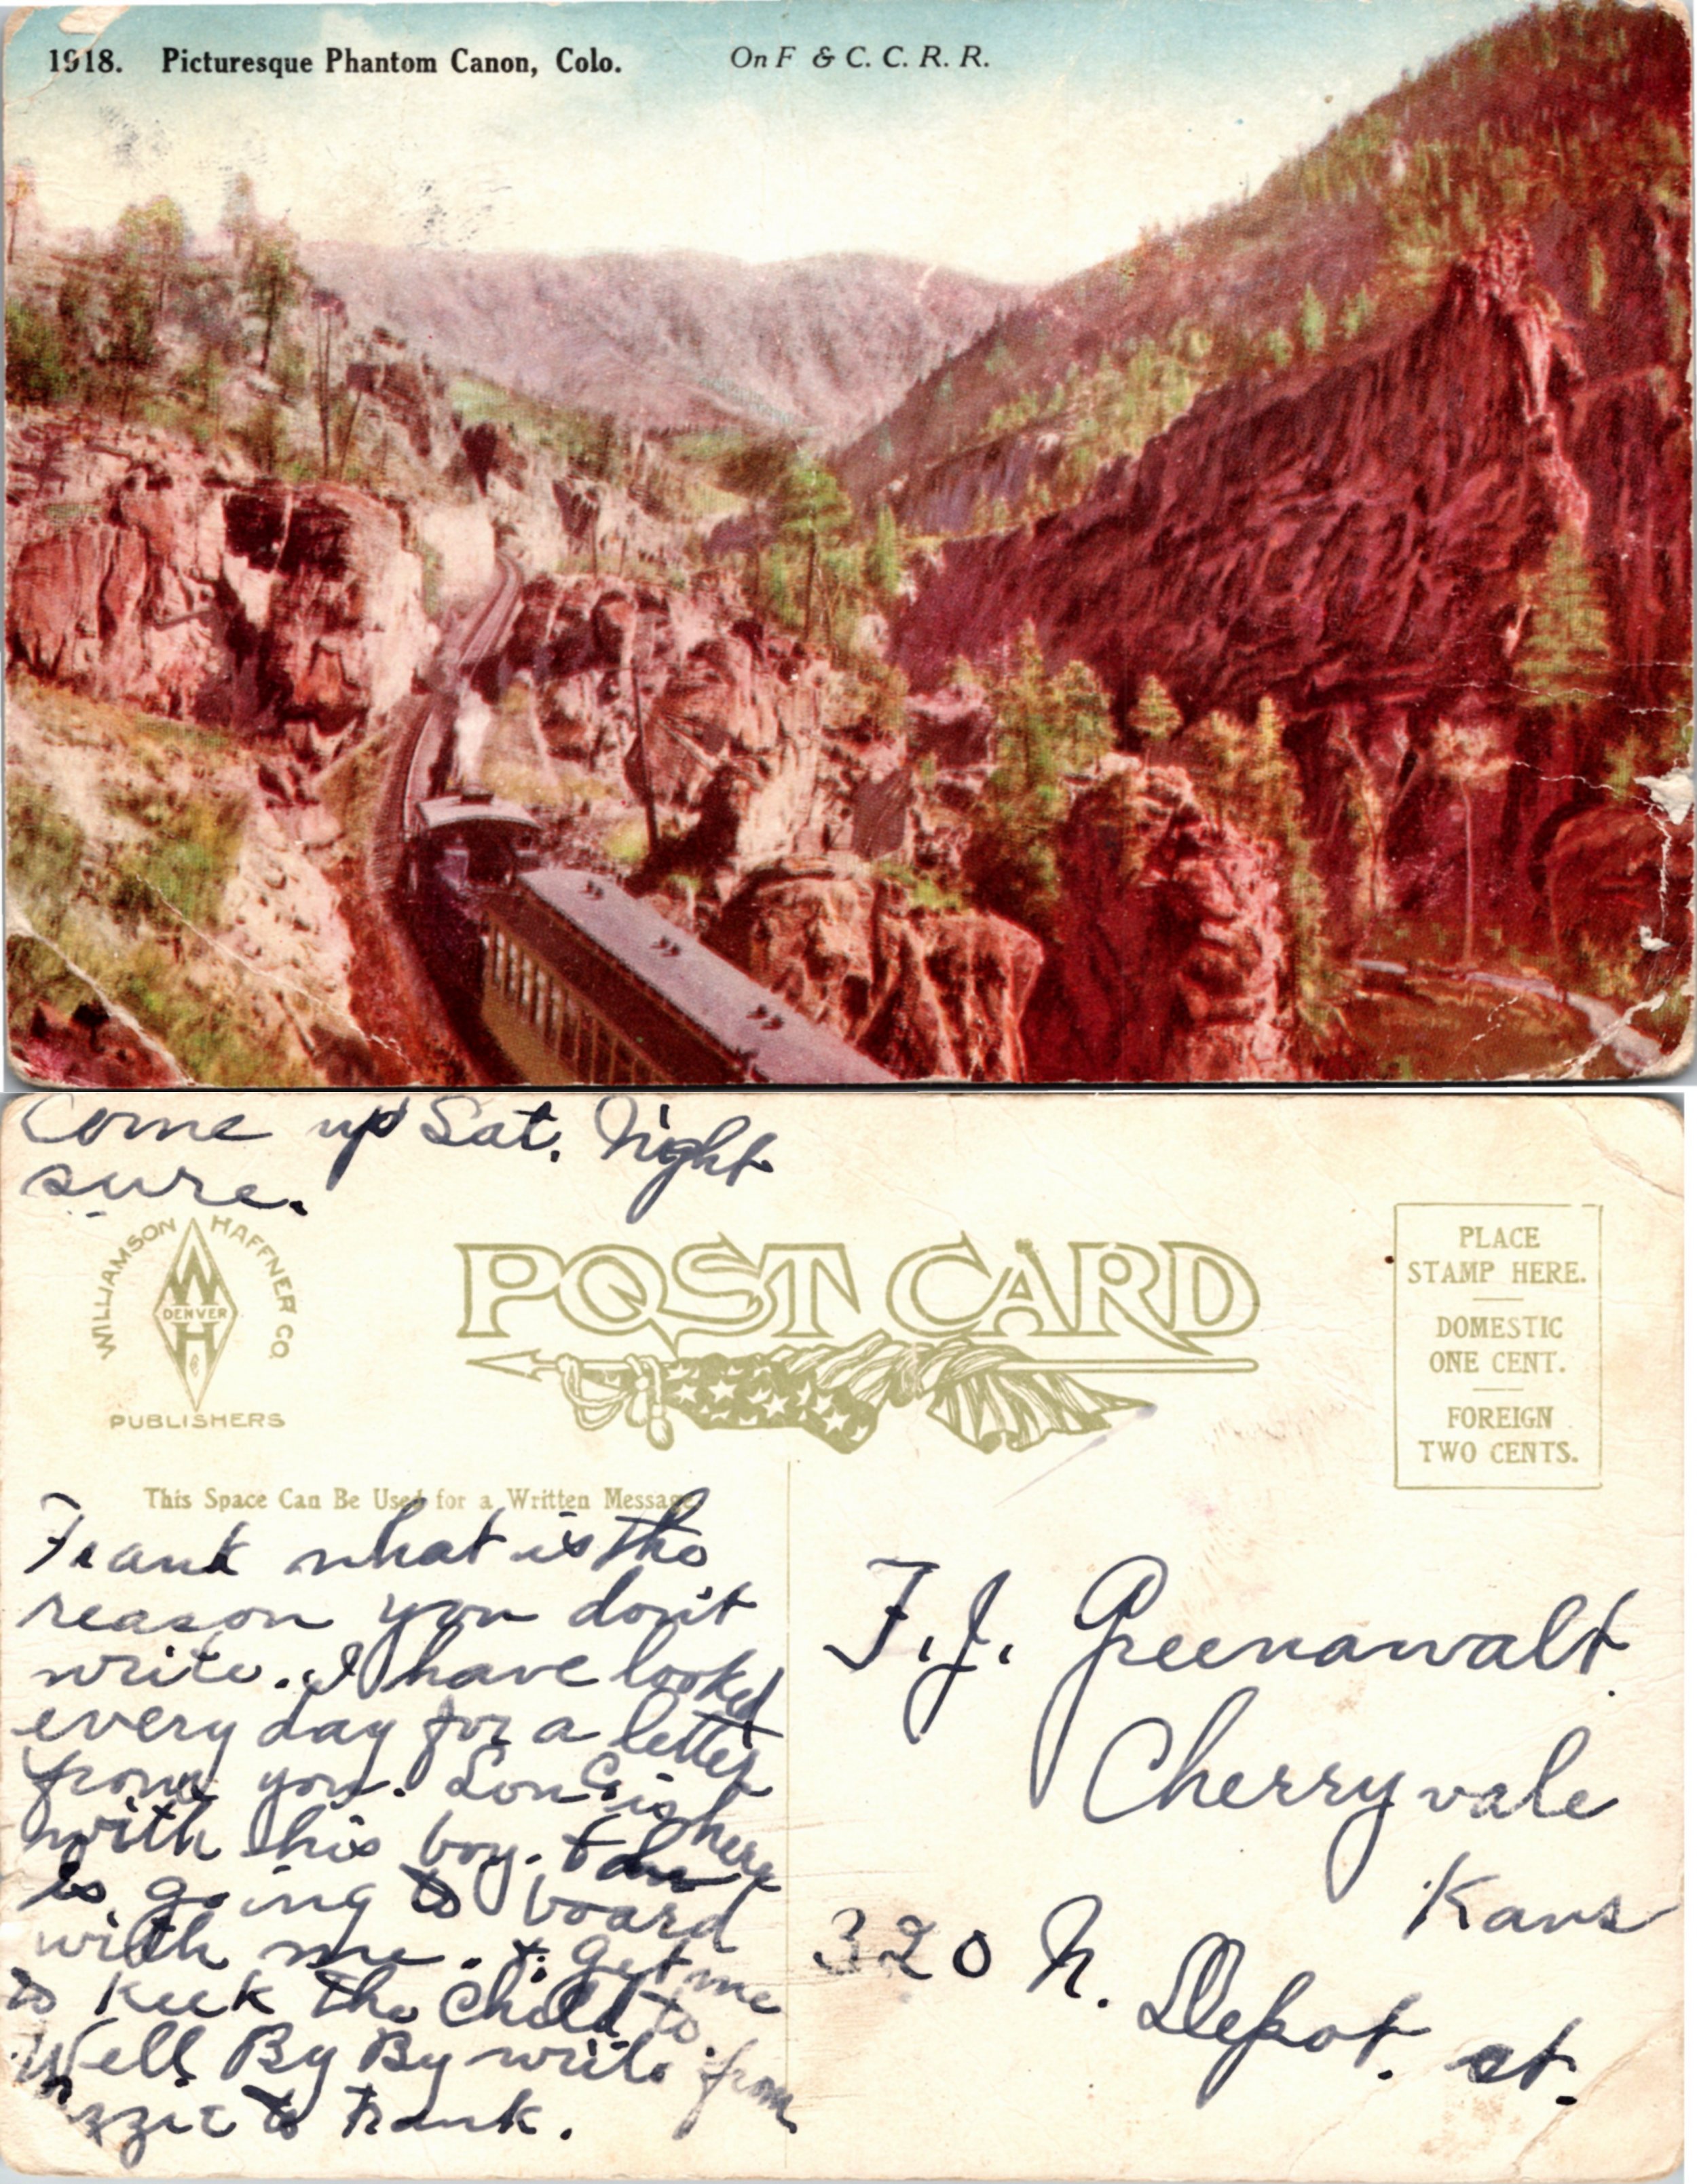 1918. Picturesque Phantom Canon, Colo. On F & C. C. R. R.
Come up Sat. Night
sure.
WILLIAMSON HAFFNER CO.
W
DENVER
H
PUBLISHERS
POST CARD
PLACE
STAMP HERE.
DOMESTIC
ONE CENT.
FOREIGN
TWO CENTS.
This Space Can Be Used for a Written Message.
Frank what is the
reason you don't
write. I have looked
every day for a letter
from you. Lon is here
with his boy.
is going to board
with me. & get me
to keek the Child to
Well By By write from
Lizzie to Frank.
F. J. Greenawalt.
Cherryvale
Kans
320 N. Depot. st.